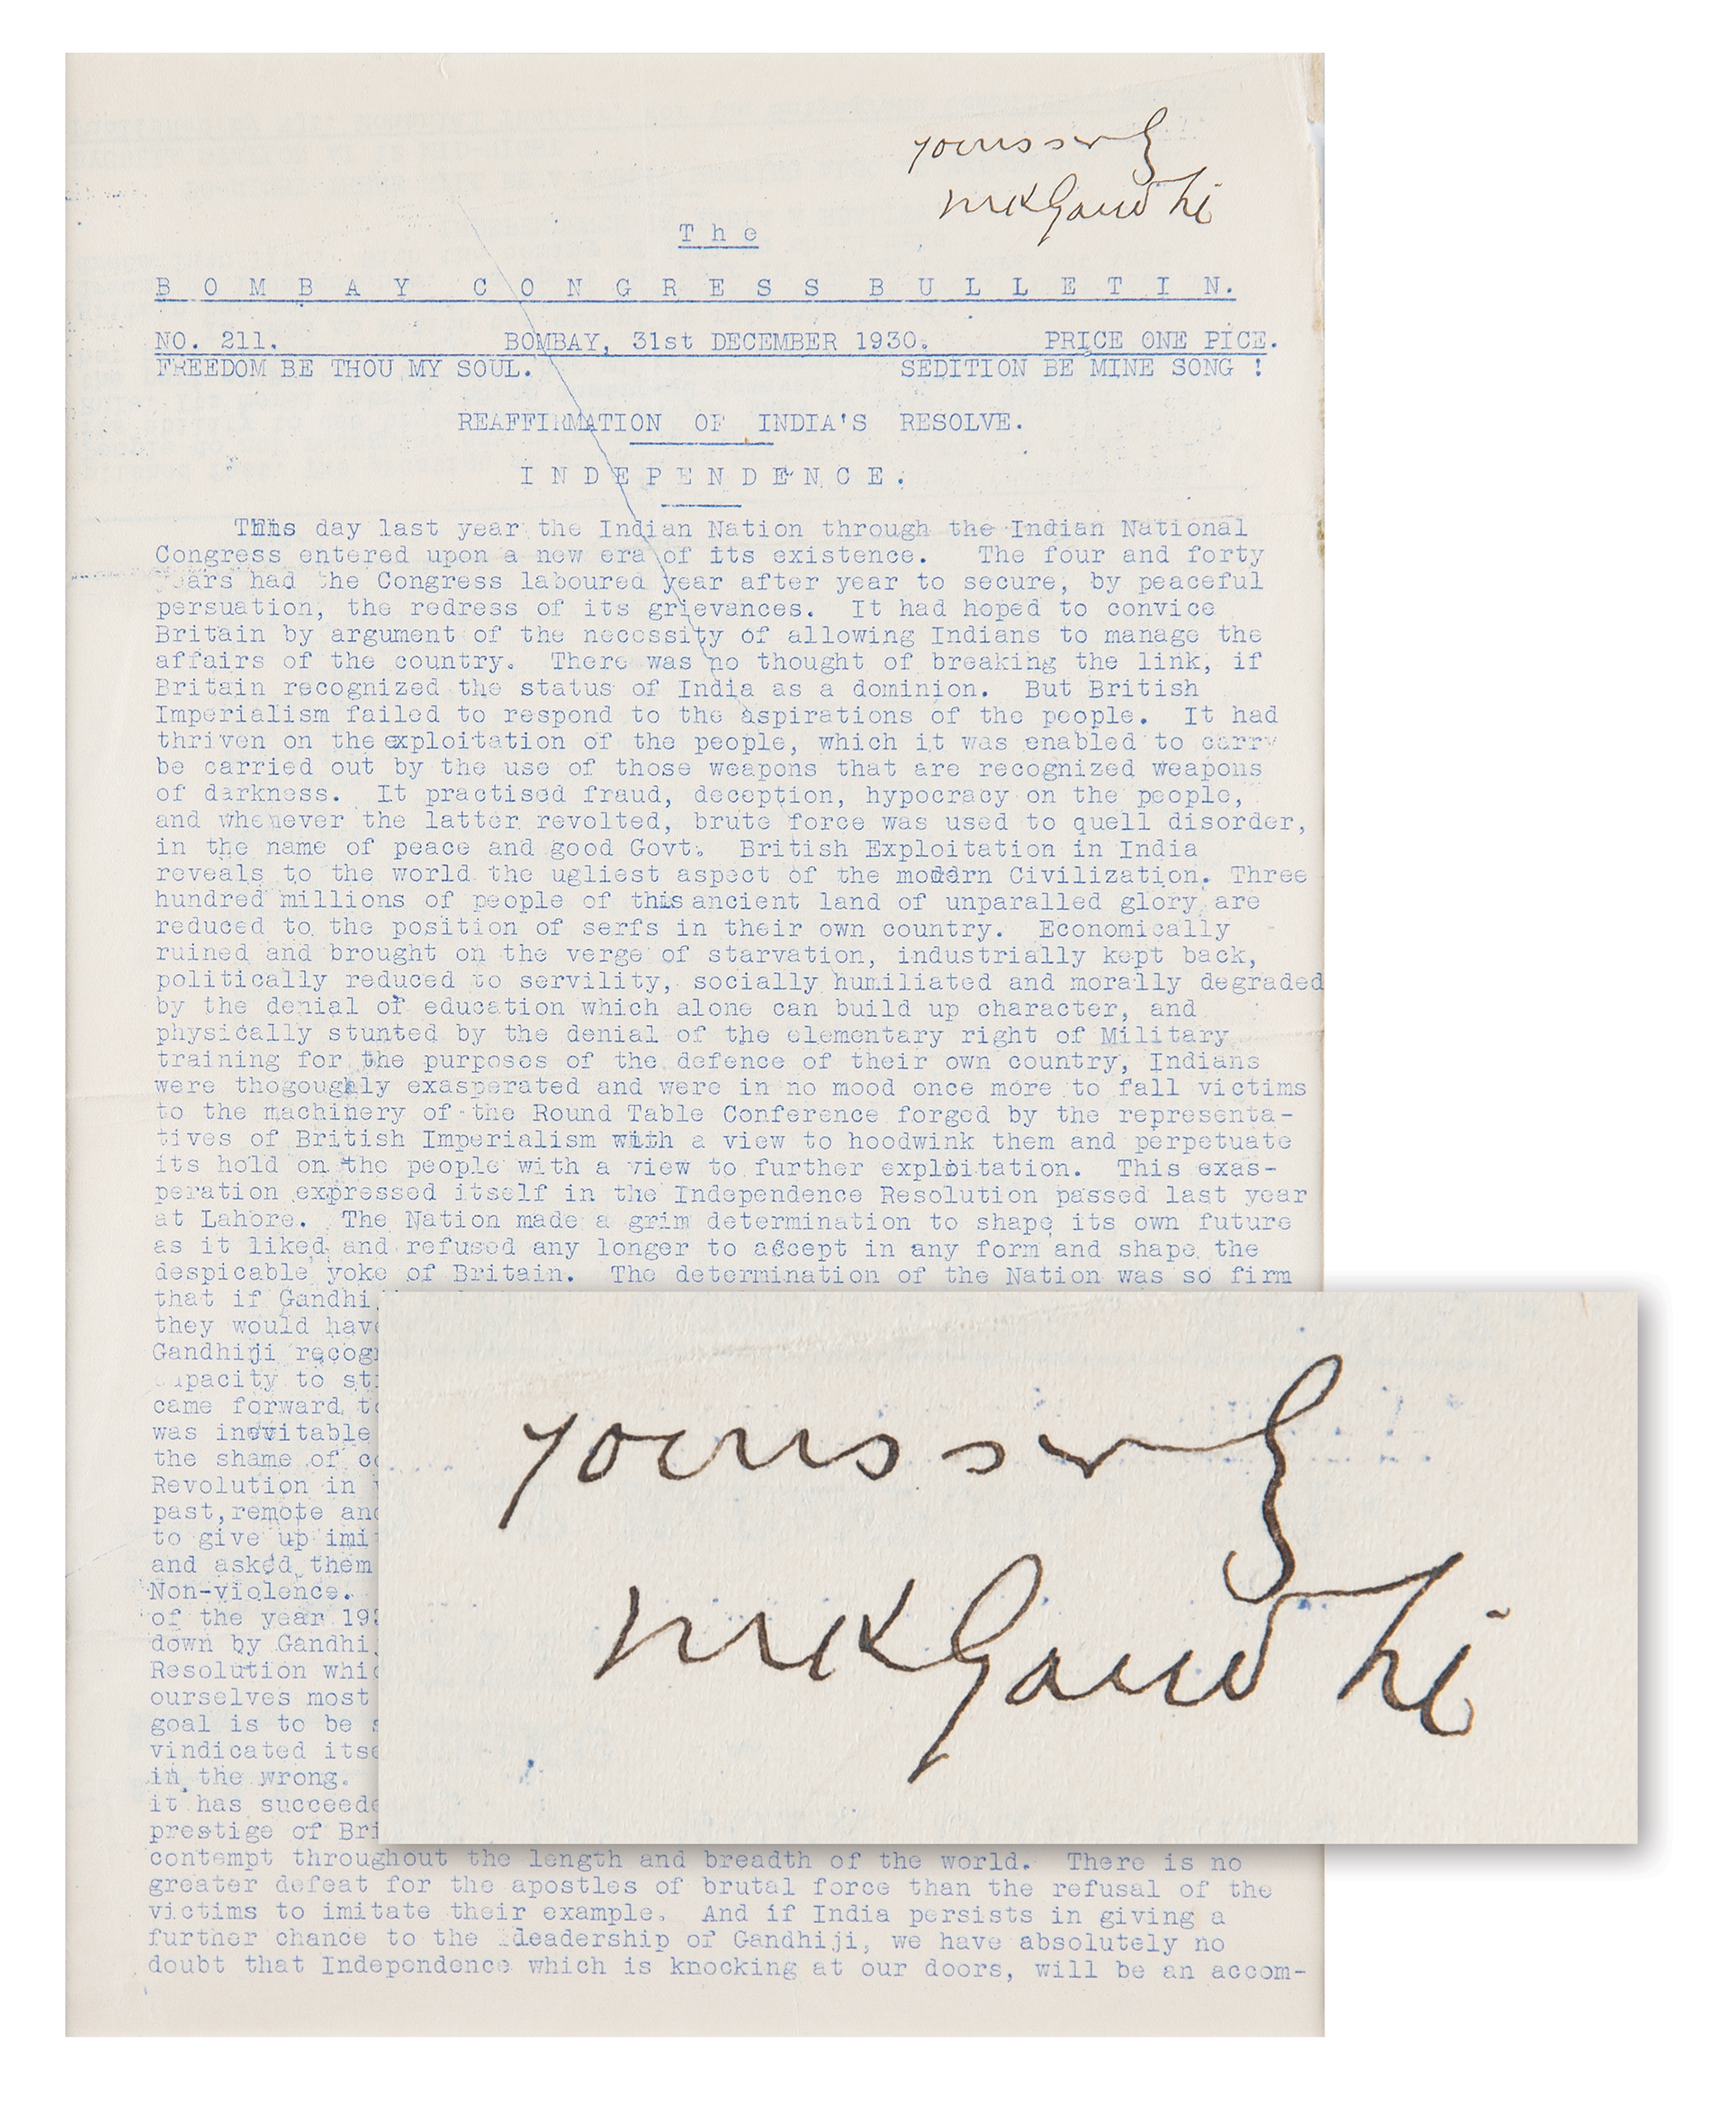 yours sincly
MKGandhi
The
BOMBAY CONGRESS BULLETIN.
NO. 211. BOMBAY, 31st DECEMBER 1930. PRICE ONE PICE.
FREEDOM BE THOU MY SOUL. SEDITION BE MINE SONG !
REAFFIRMATION OF INDIA'S RESOLVE.
INDEPENDENCE.
This day last year the Indian Nation through the Indian National
Congress entered upon a new era of its existence. The four and forty
years had the Congress laboured year after year to secure, by peaceful
persuation, the redress of its grievances. It had hoped to convice
Britain by argument of the necessity of allowing Indians to manage the
affairs of the country. There was no thought of breaking the link, if
Britain recognized the status of India as a dominion. But British
Imperialism failed to respond to the aspirations of the people. It had
thriven on the exploitation of the people, which it was enabled to carry
be carried out by the use of those weapons that are recognized weapons
of darkness. It practised fraud, deception, hypocracy on the people,
and whenever the latter revolted, brute force was used to quell disorder,
in the name of peace and good Govt. British Exploitation in India
reveals to the world the ugliest aspect of the modern Civilization. Three
hundred millions of people of this ancient land of unparalled glory are
reduced to the position of serfs in their own country. Economically
ruined and brought on the verge of starvation, industrially kept back,
politically reduced to servility, socially humiliated and morally degraded
by the denial of education which alone can build up character, and
physically stunted by the denial of the elementary right of Military
training for the purposes of the defence of their own country, Indians
were thogoughly exasperated and were in no mood once more to fall victims
to the machinery of the Round Table Conference forged by the representa-
tives of British Imperialism with a view to hoodwink them and perpetuate
its hold on the people with a view to further exploitation. This exas-
peration expressed itself in the Independence Resolution passed last year
at Lahore. The Nation made a grim determination to shape its own future
as it liked and refused any longer to accept in any form and shape the
despicable yoke of Britain. The determination of the Nation was so firm
that if Gandhi
they would have
Gandhiji recog
capacity to st
came forward t
was inevitable
the shame of c
Revolution in
past, remote and
to give up imi
and asked them
Non-violence.
of the year 193
down by Gandhi
Resolution whic
ourselves most
goal is to be s
vindicated itse
in the wrong.
it has succeede
prestige of Bri
yours sincly
MKGandhi
contempt throughout the length and breadth of the world. There is no
greater defeat for the apostles of brutal force than the refusal of the
victims to imitate their example. And if India persists in giving a
further chance to the leadership of Gandhiji, we have absolutely no
doubt that Independence which is knocking at our doors, will be an accom-